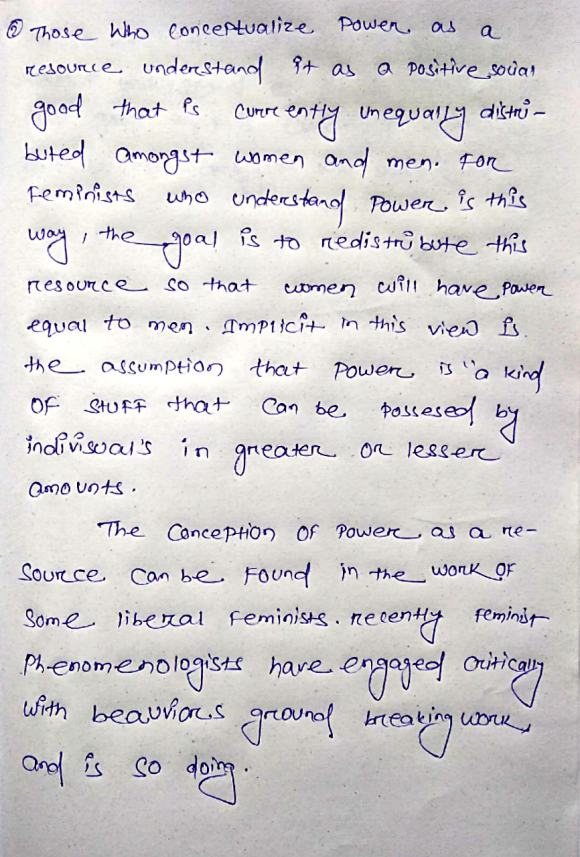 ⑥ Those Who conceptualize Power, as a
resource understand it as a positive social
good that is currently unequally distri-
buted amongst women and men. For
Feminists who understand Power is this
way, the goal is to redistribute this
resource so that women will have power
equal to men. Implicit in this view is
the assumption that Power is "a kind
OF STUFF that Can be possesed by
indivisual's in greater or lesser
amounts.
The Conception OF Power as a re-
Source Can be Found in the work OF
Some liberal Feminists. recently feminist
Phenomenologists have engaged critically
with beauviors ground breaking work,
and is so doing.